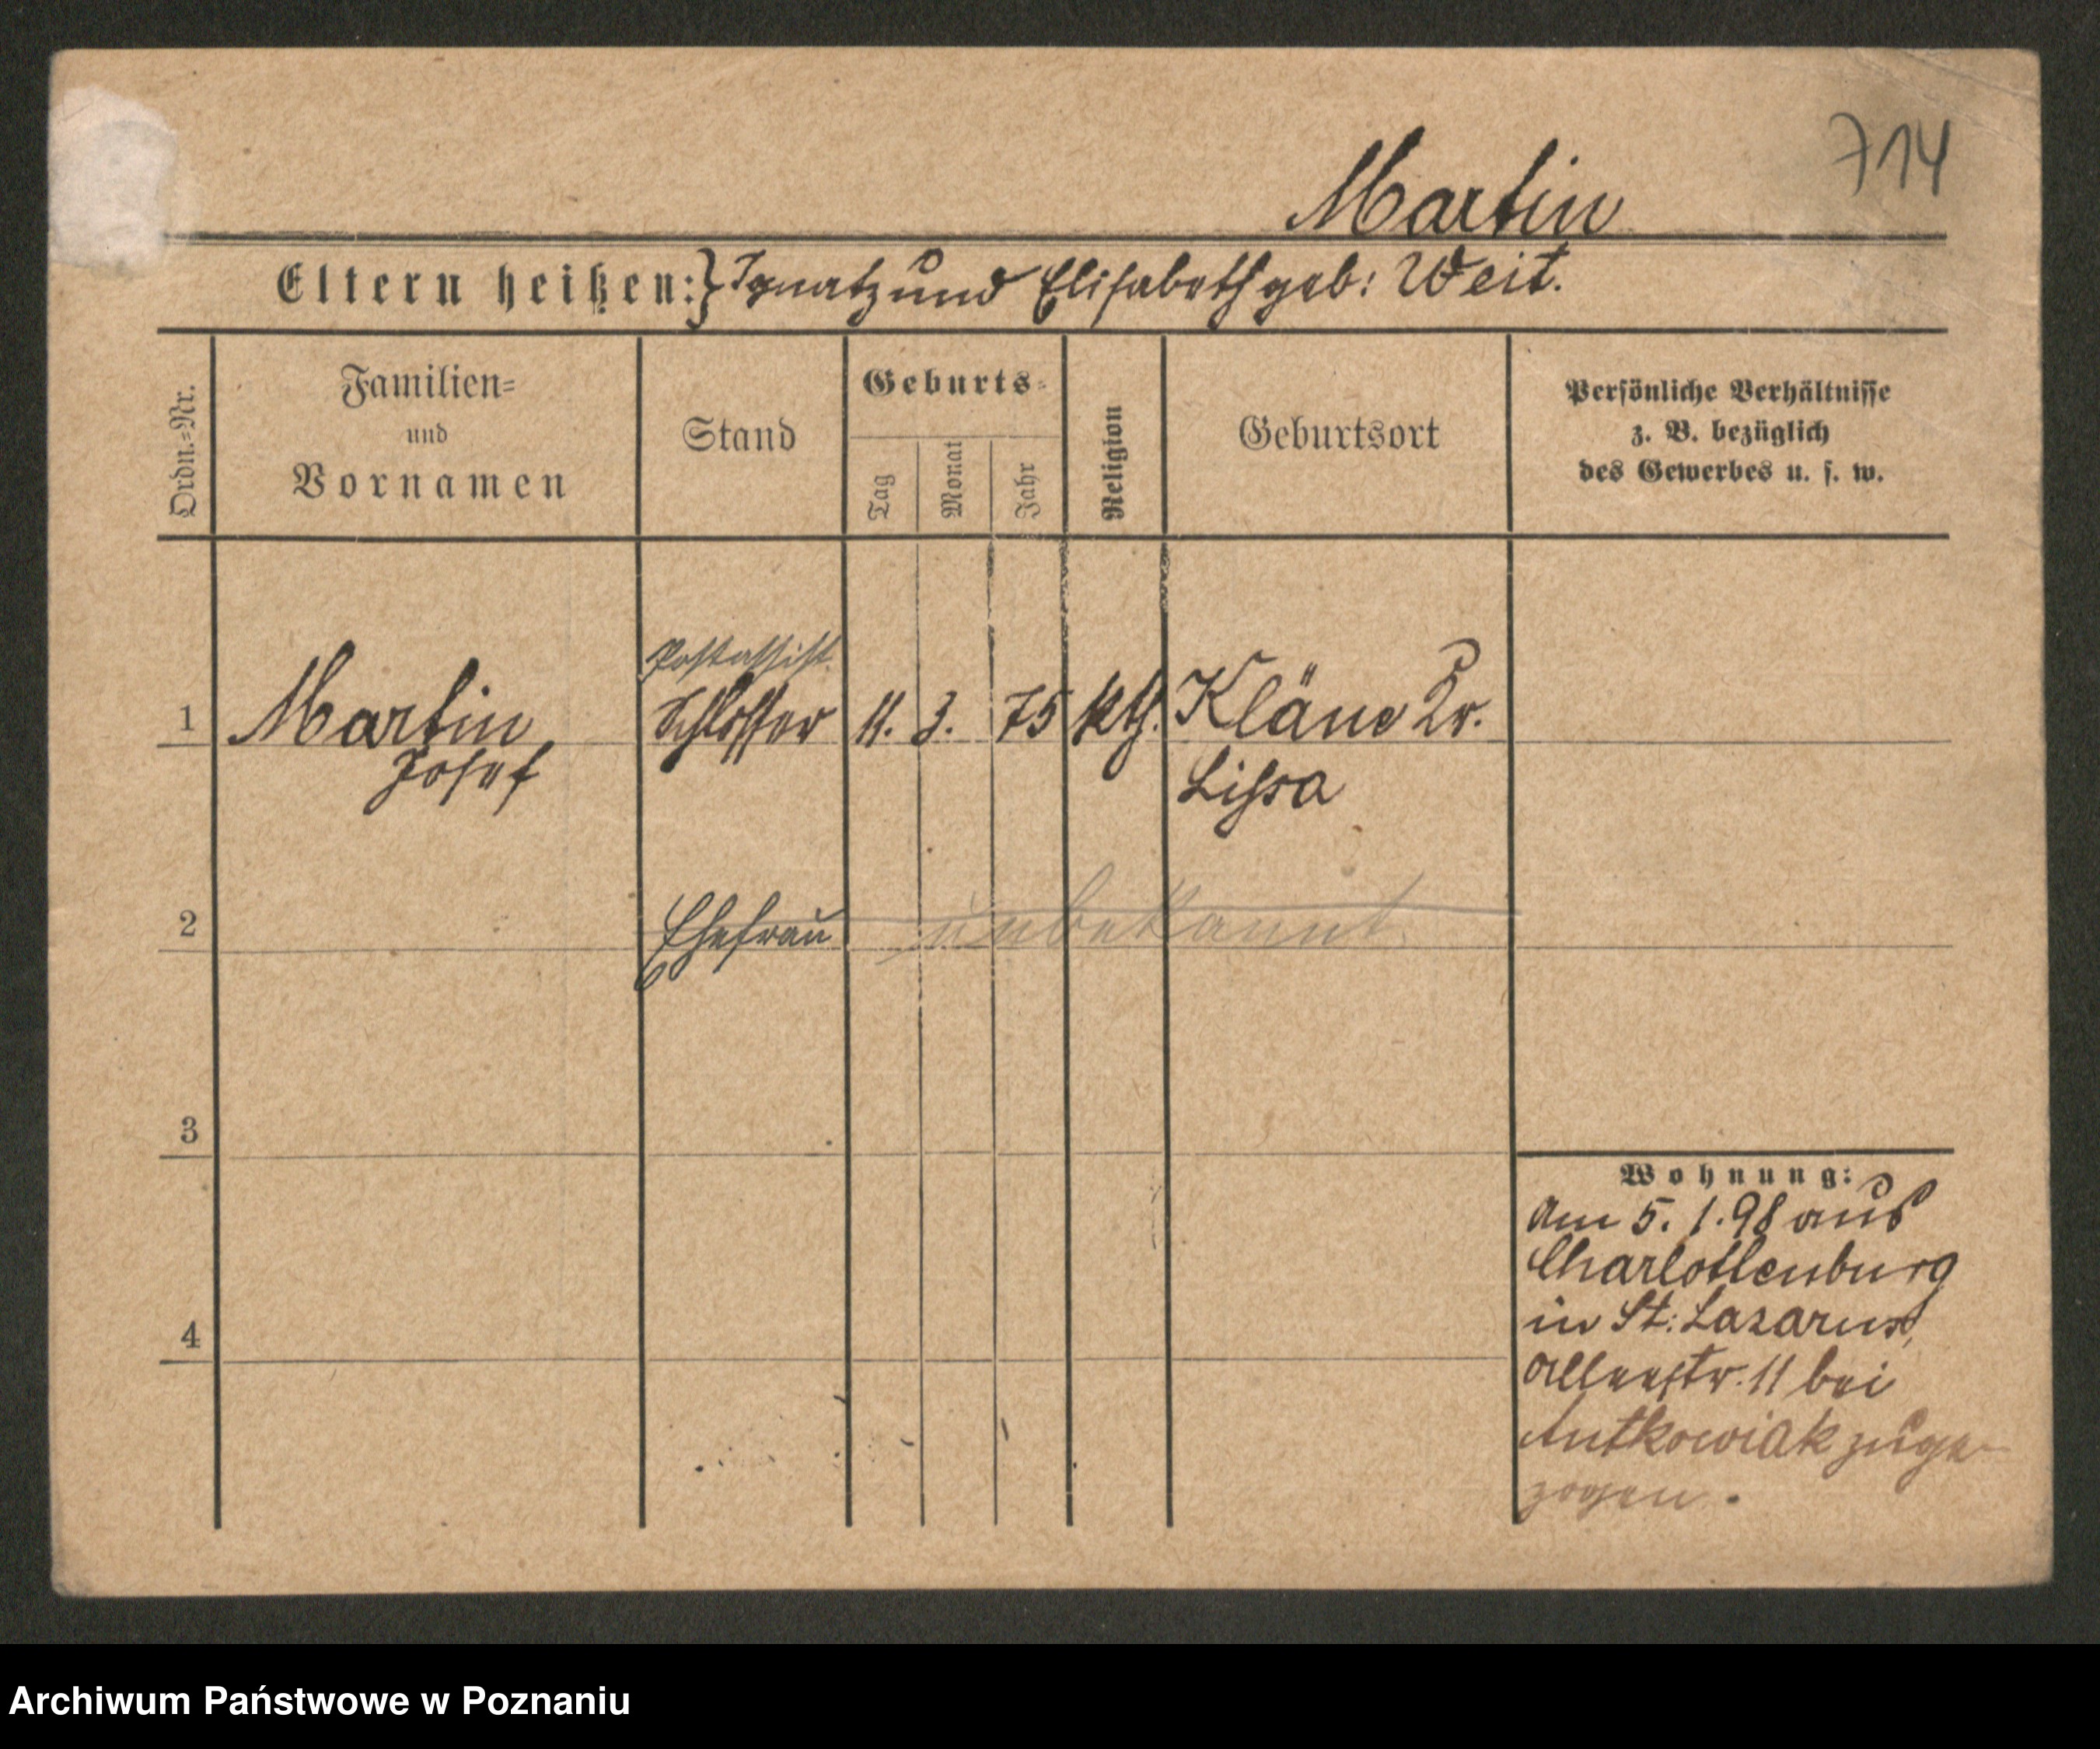 714
Martin
Eltern heißen:} Ignatz und Elisabeth geb: Weit.
Ordn.=Nr.
Familien=
und
Vornamen
Stand
Geburts=
Tag
Monat
Jahr
Religion
Geburtsort
Persönliche Verhältnisse
z. B. bezüglich
des Gewerbes u. s. w.
Postassist.
1 Martin Schlosser 11. 3. 75 kth. Kläne Kr.
Josef Lissa
2 Ehefrau unbekannt
3
Wohnung:
Am 5. 1. 98 aus
Charlottenburg
in St: Lazarus,
4
Alleestr. 11 bei
Antkowiak zuge-
zogen.
Archiwum Państwowe w Poznaniu